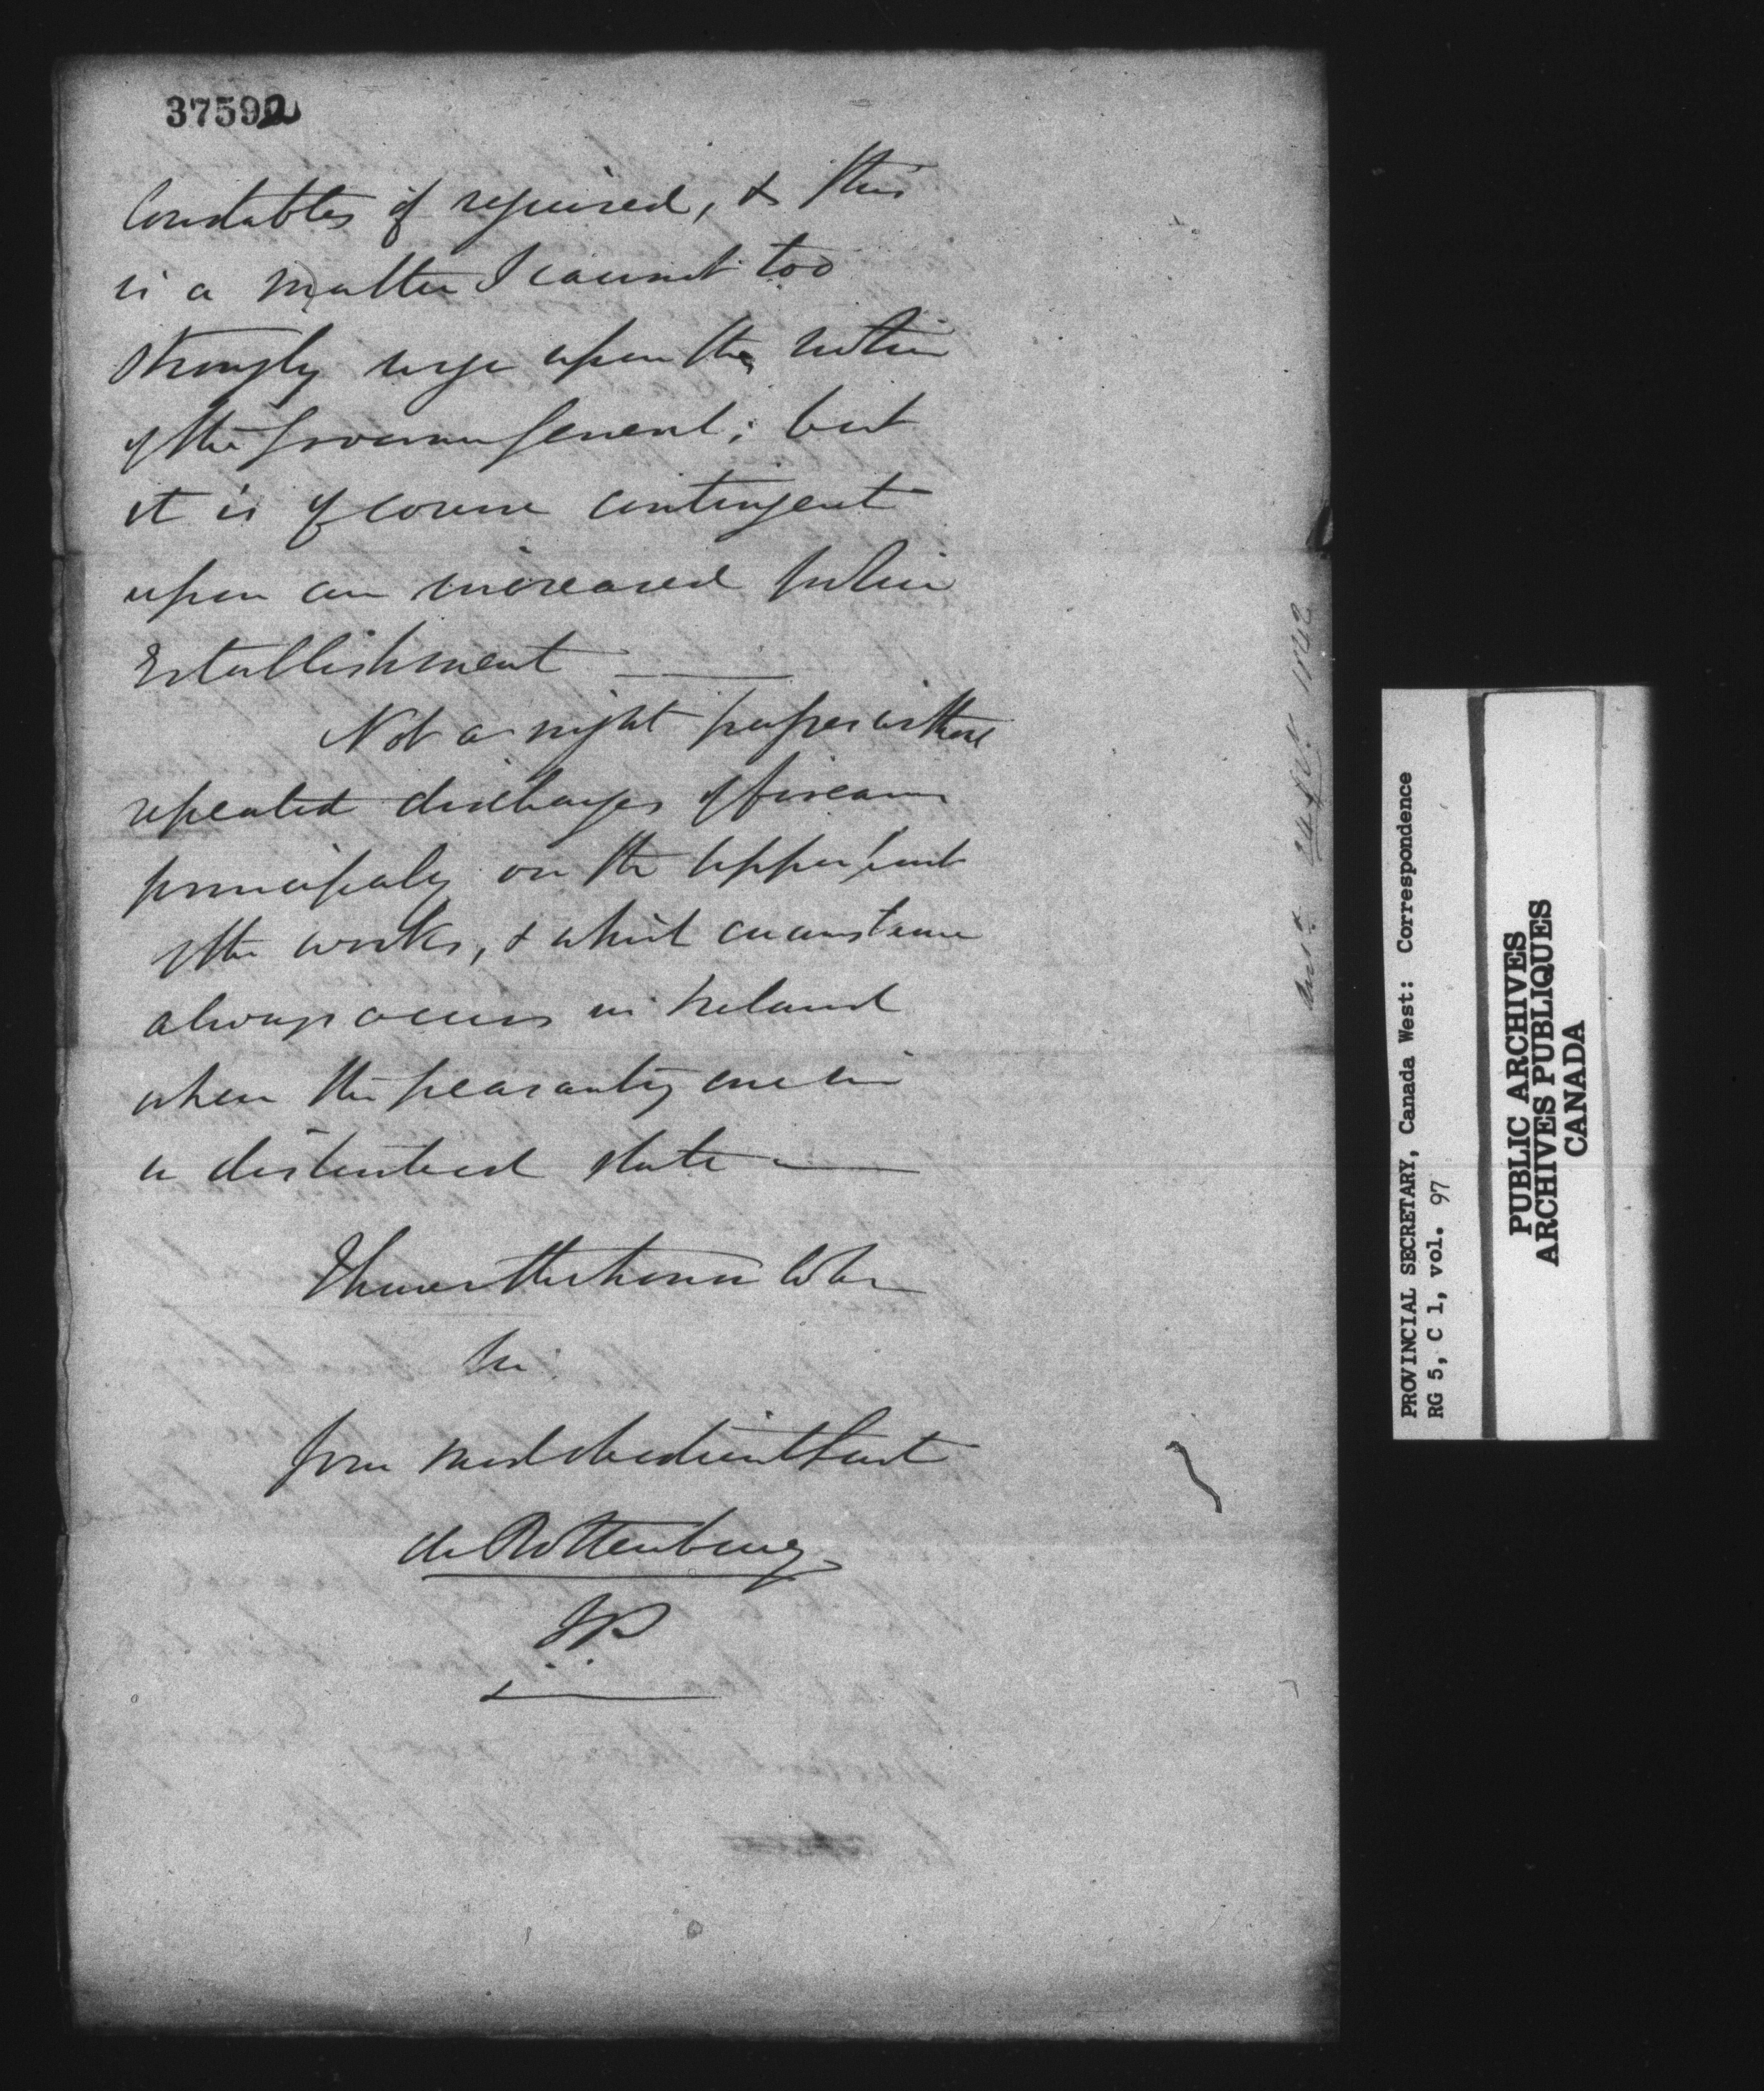 37592
Constables if required, & this
is a matter I cannot too
strongly urge upon the notice
of the Governor General; but
it is of course contingent
upon an increased police
Establishment
Not a night passes without
repeated discharges of firearms
principaly on the upper part
of the works, & which circumstance
always occurs in Ireland
when the peasantry are in
a disturbed state
I have the honor to be
Sir
Your most obedient Servt
de Rottenburg
JP
24 1842
PROVINCIAL SECRETARY, Canada West: Correspondence
RG 5, C 1, vol. 97
PUBLIC ARCHIVES
ARCHIVES PUBLIQUES
CANADA